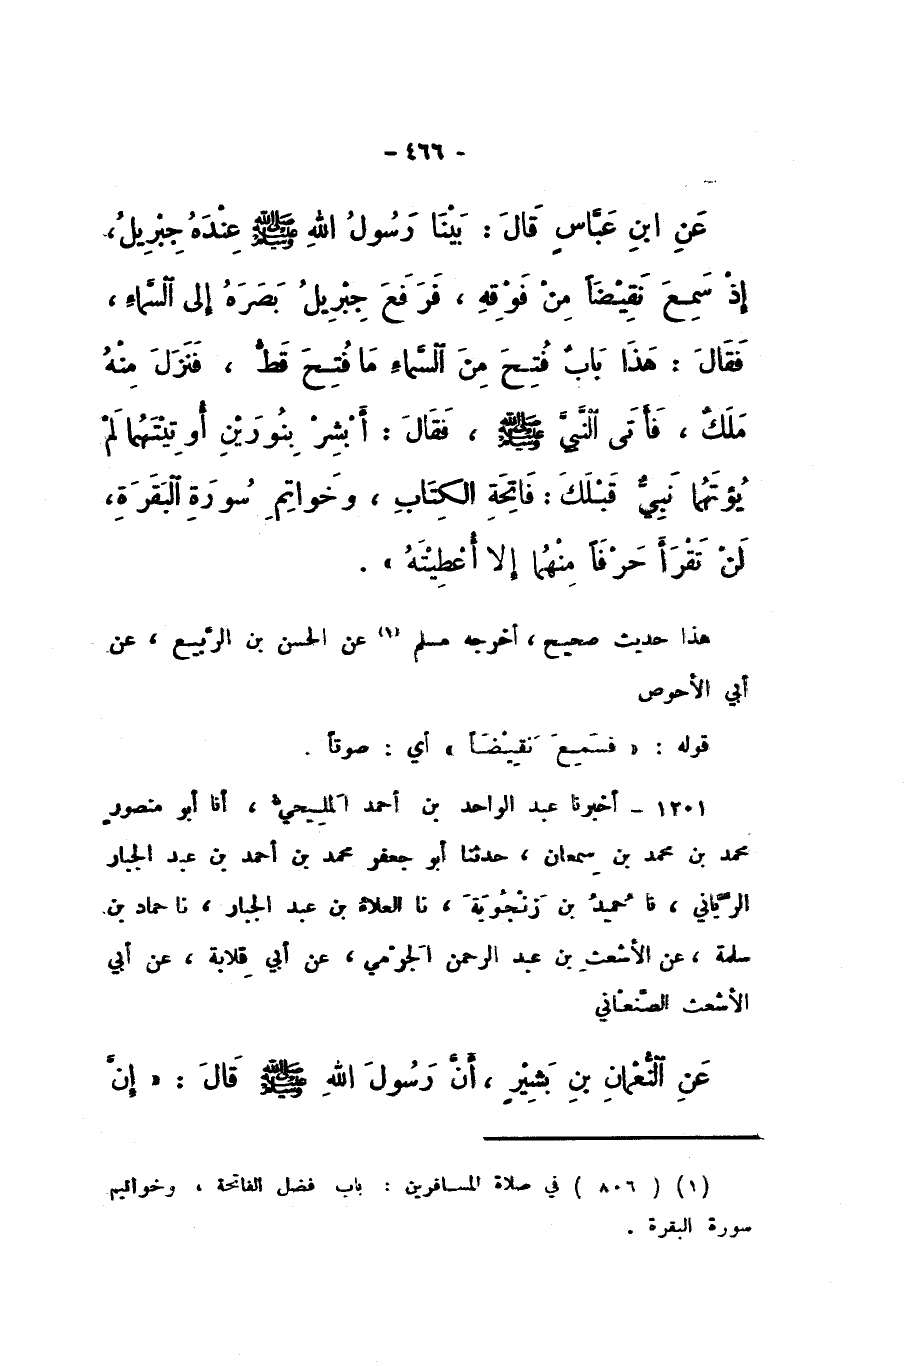 - ٤٦٦ -
عَنِ ابنِ عَبَّاسٍ قَالَ : بَيْنَا رَسُولُ اللهِ ﷺ عِنْدَهُ جِبْرِيلُ ،
إِذْ سَمِعَ نَقِيْضَاً مِنْ فَوْقِهِ ، فَرَفَعَ جِبْرِيلُ بَصَرَهُ إِلى ٱلسَّماءِ ،
فَقَالَ : هَذَا بَابٌ فُتِحَ مِنَ ٱلسَّماءِ مَا فُتِحَ قَطُّ ، فَنَزَلَ مِنْهُ
مَلَكٌ ، فَأَتَى ٱلنَّبيَّ ﷺ ، فَقَالَ : أَبْشِرْ بِنُورَيْنِ أُوتِيْتَهُما لَمْ
يُؤتَهُما نَبِيٌّ قَبْلَكَ : فَاتِحَةِ الكِتَابِ ، وخَواتِمِ سُورَةِ ٱلبَقَرَةِ ،
لَنْ تَقْرَأَ حَرْفَاً مِنْهُما إِلا أُعْطِيْتَهُ » .
هذا حديث صحيح ، أخرجه مسلم (١) عن الحسن بن الرَّبيع ، عن
أبي الأحوص
قوله : « فسَمِعَ نَقيْضَاً » أي : صوتاً .
١٢٠١ - أخبرنا عبد الواحد بن أحمد المَليحيُّ ، أنا أبو منصورٍ
محمد بن محمد بن سِمعان ، حدثنا أبو جعفر محمد بن أحمد بن عبد الجبار
الرَّيَّاني ، نا حُميدُ بن زَنْجُويَةَ ، نا العلاءُ بن عبد الجبار ، نا حماد بن
سلمة ، عن الأشعثِ بن عبد الرحمن الجَرْمي ، عن أبي قِلابة ، عن أبي
الأشعث الصَّنعْاني
عَنِ ٱلنُّعْمانِ بنِ بَشِيْرٍ ، أَنَّ رَسُولَ اللهِ ﷺ قَالَ : « إِنَّ
(١) ( ٨٠٦ ) في صلاة المسافرين : باب فضل الفاتحة ، وخواتيم
سورة البقرة .